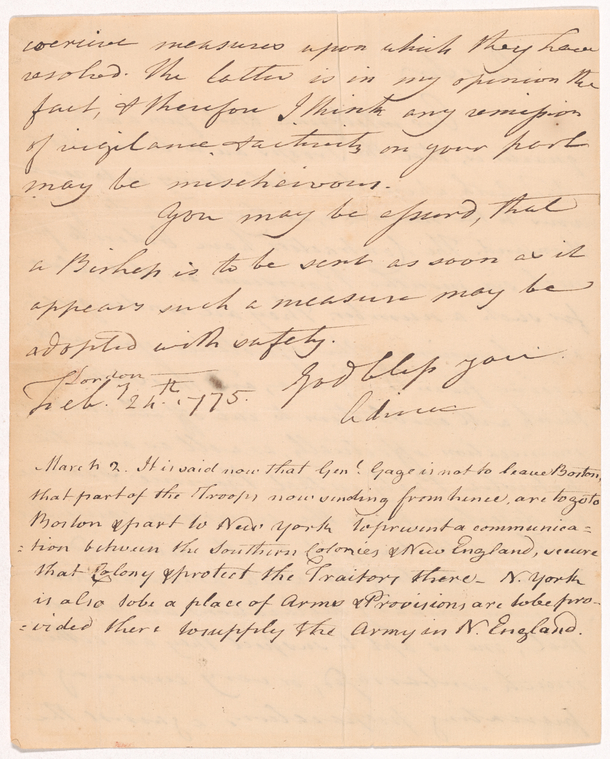 coercive measures upon which they have
resolved. The latter is in my opinion the
fact, & therefore I think any remission
of vigilance & activity on your part
may be mischeivous.
You may be assurd, that
a Bishop is to be sent as soon as it
appears such a measure may be
adopted with safety.
God bless you.
London
Feb.y 24th. 1775.
Adieu
March 2. It is said now that Genl. Gage is not to leave Boston,
that part of the Troops now sending from hence, are to go to
Boston & part to New York to prevent a communica=
=tion between the Southern Colonies & New England, secure
that Colony & protect the Traitors there – N. York
is also to be a place of Arms & Provisions are to be pro-
=vided there to supply the Army in N. England.